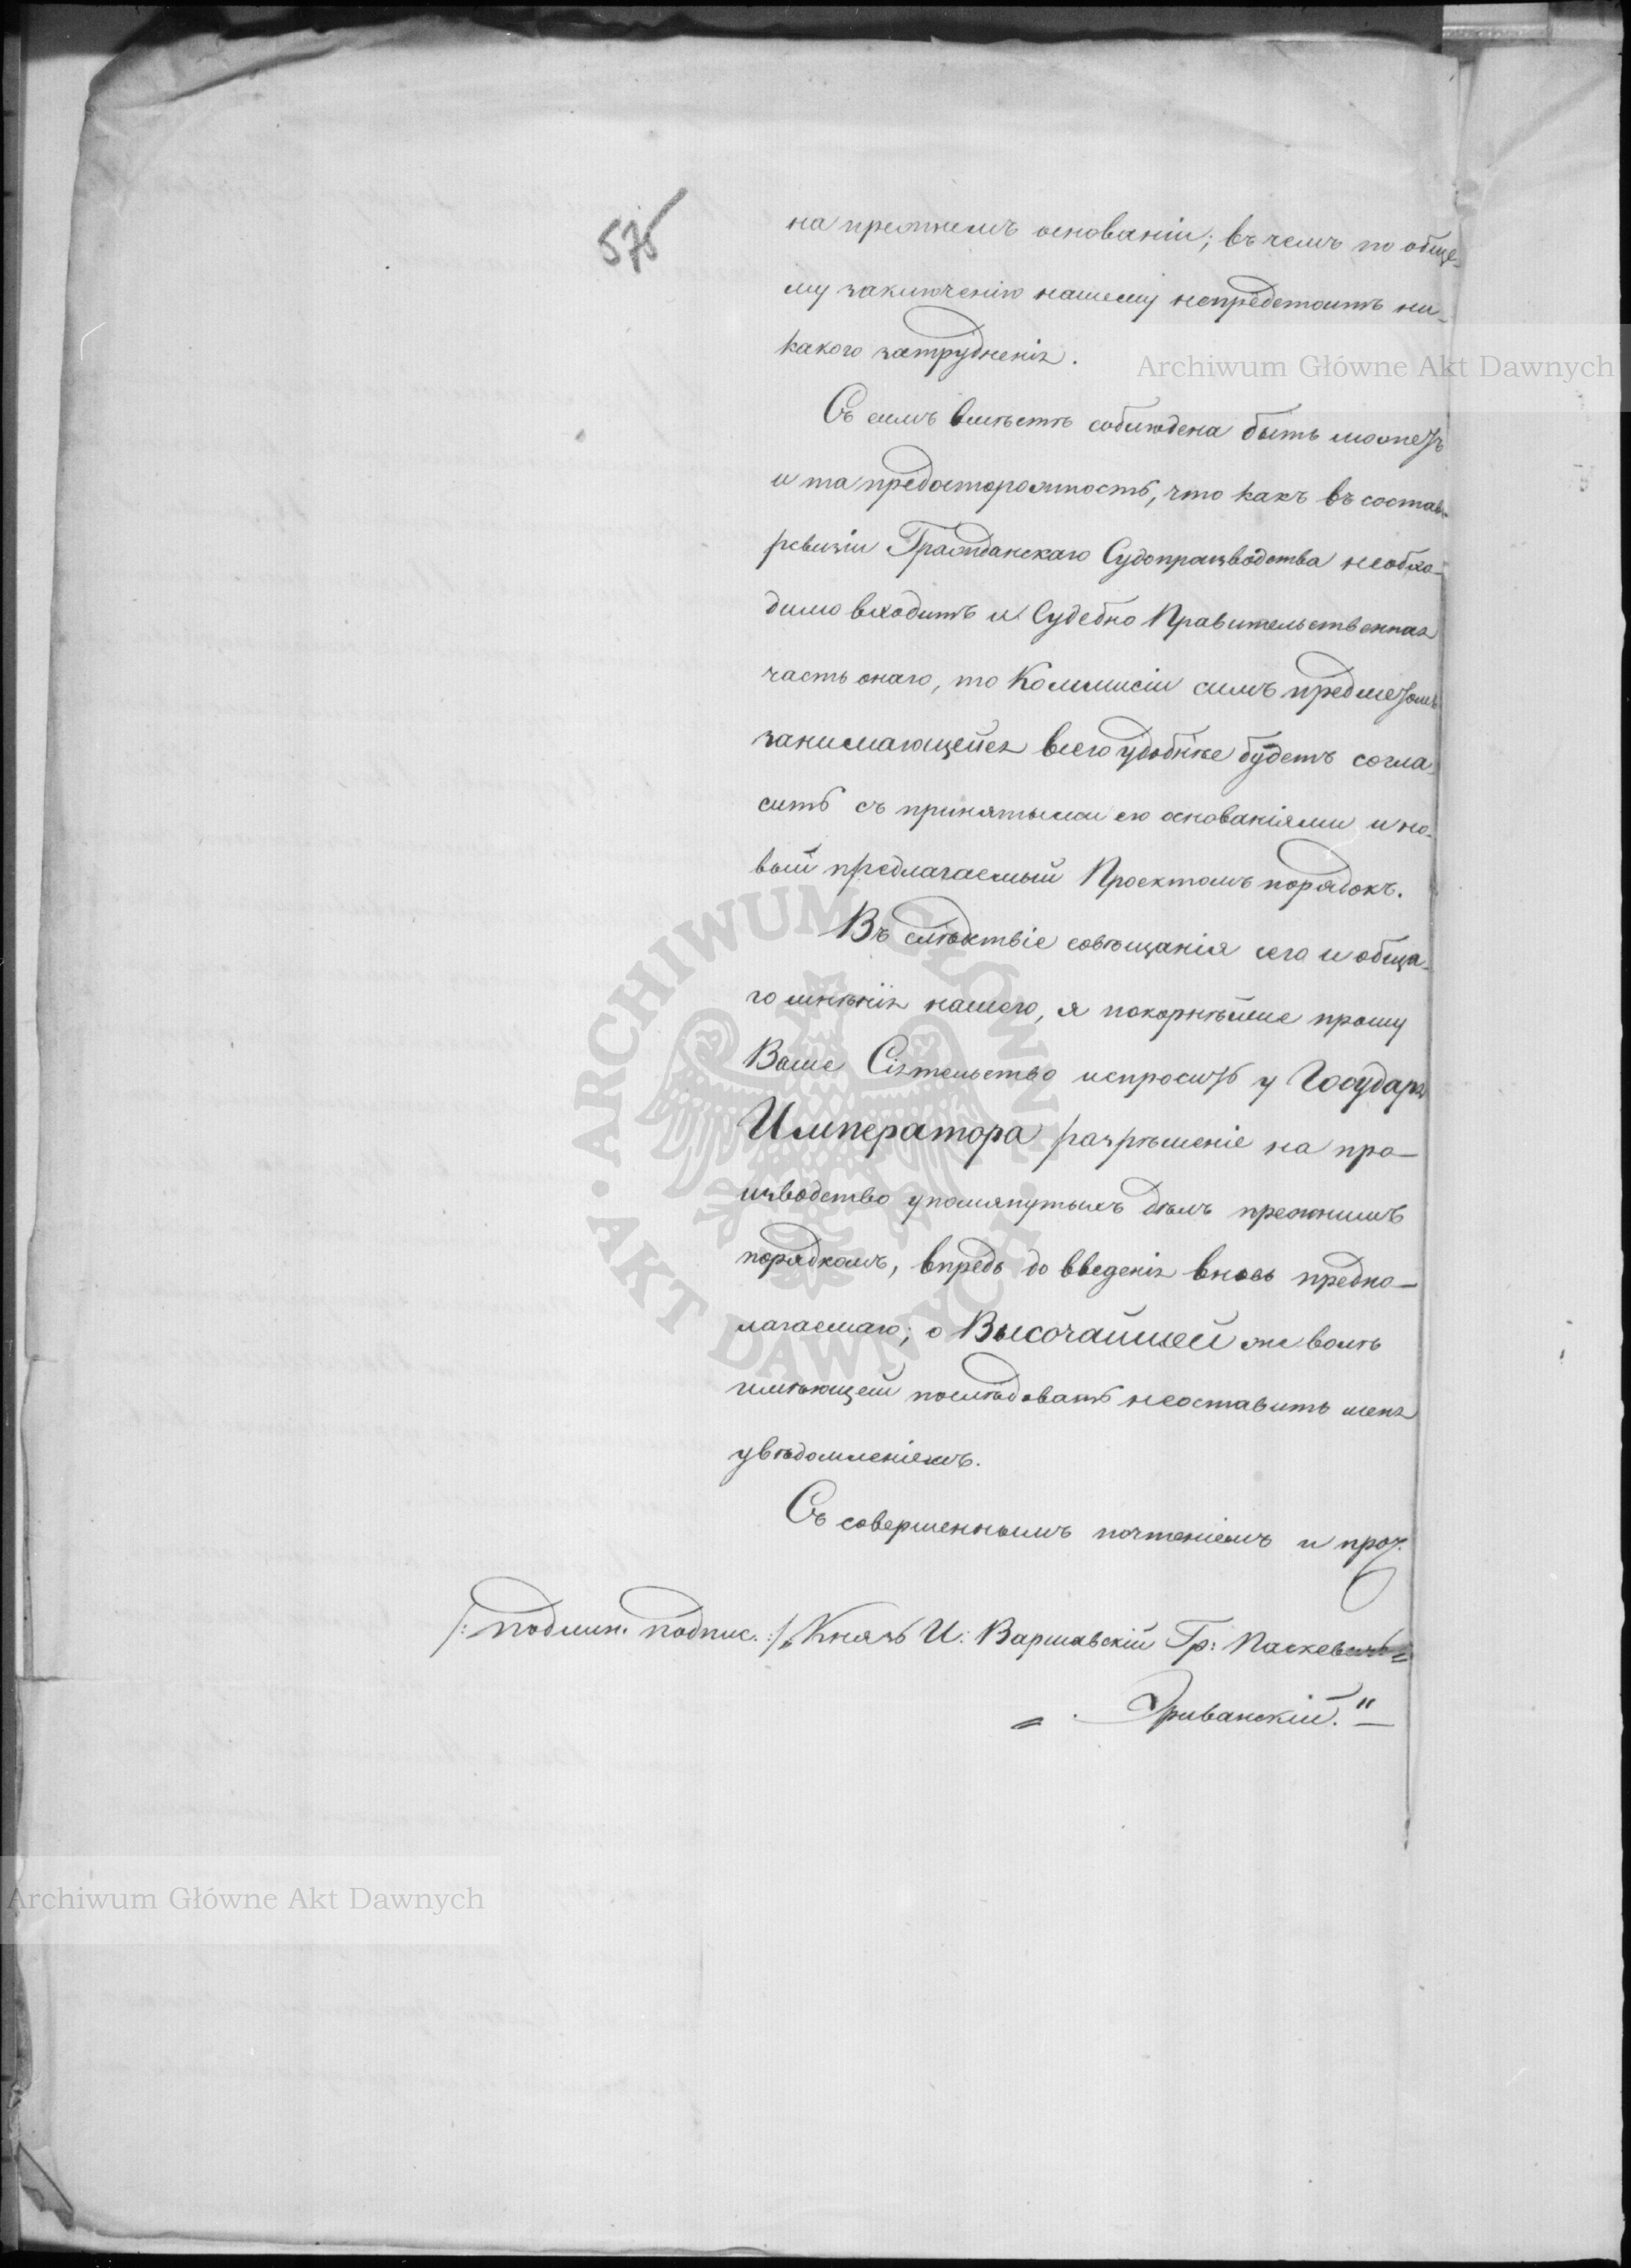 575
на прежнемъ основаніи; въ чемъ по обще-
му заключенію нашему непредстоитъ ни-
какого затрудненія.
Archiwum Główne Akt Dawnych
Съ симъ вмѣстѣ соблюдена быть можетъ
и та предосторожность, что какъ въ составъ
ревизіи Гражданскаго Судопроизводства необхо-
димо входитъ и Судебно Правительственная
часть онаго, то Коммисіи симъ предметомъ
занимающейся всего удобнѣе будетъ согла-
сить съ принятыми ею основаніями и но-
вый предлагаемый Проектомъ порядокъ.
Въ слѣдствіе совѣщанія сего и обща-
го мнѣнія нашего, я покорнѣйше прошу
Ваше Сіятельство испросить у Государя
Императора разрѣшеніе на про-
изводство упомянутыхъ дѣлъ прежнимъ
порядкомъ, впредь до введенія вновь предпо-
лагаемаго; о Высочайшей же волѣ
имѣющей послѣдовать неоставить меня
увѣдомленіемъ.
Съ совершеннымъ почтеніемъ и проч.
/: подлин. подпис. :/ „Князь И: Варшавскій Гр: Паскевичъ=
= Эриванскій."
ARCHIWUM GŁÓWNE · AKT DAWNYCH ·
Archiwum Główne Akt Dawnych